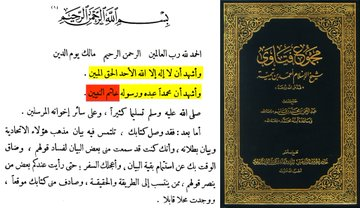 بسم الله الرحمن الرحيم (١)
الحمد لله رب العالمين الرحمن الرحيم مالك يوم الدين
وأشهد أن لا إله إلا الله الأحد الحق المبين
وأشهد أن محمداً عبده ورسوله خاتم النبيين
صلى الله عليه وسلم تسليما كثيراً، وعلى سائر إخوانه المرسلين .
أما بعد : فقد وصل كتابك، تلتمس فيه بيان مذهب هؤلاء الاتحادية
وبيان بطلانه، وأنك كنت قد سمعت مني بعض البيان لفساد قولهم، وضاق
الوقت بك عن استتمام بقية البيان، وأعجلك السفر؛ حتى رأيت عندكم بعض من
ينصر قولهم، ممن ينتسب إلى الطريقة والحقيقة، وصادف مني كتابك موقعاً،
ووجدت محلا قابلا .
مجموع فتاوى
شيخ الإسلام أحمد بن تيمية